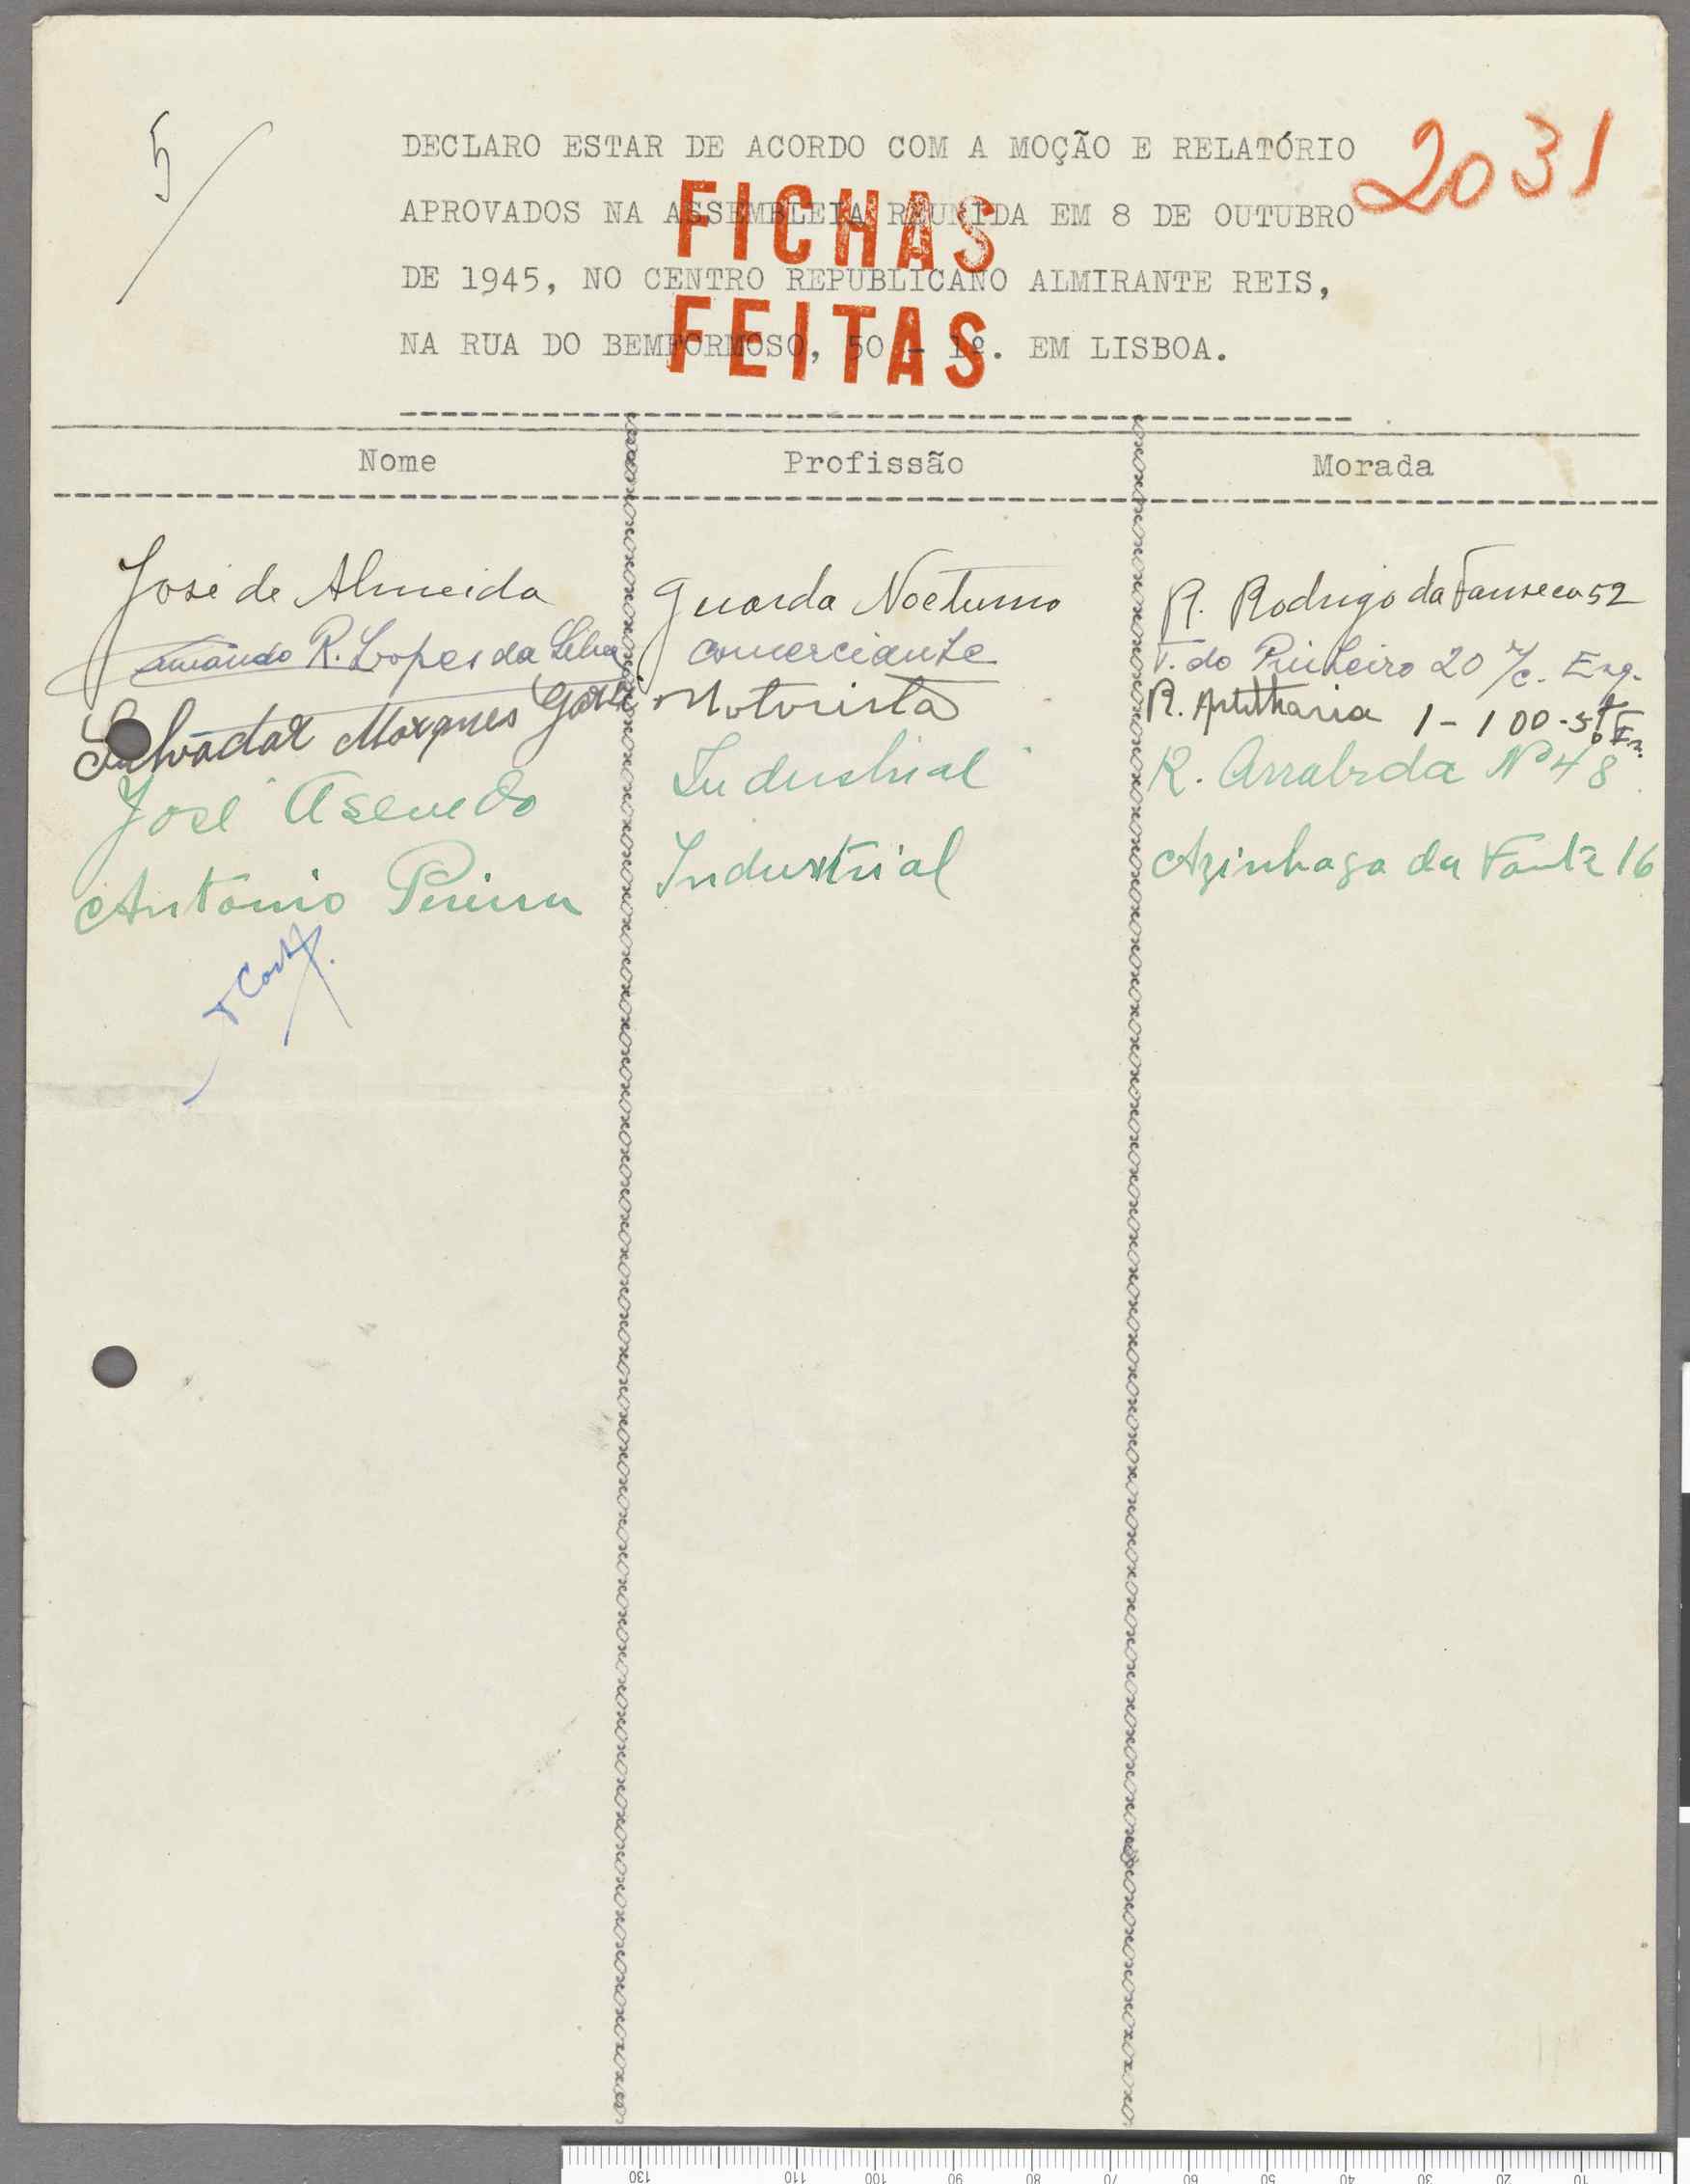 5
2031
DECLARO ESTAR DE ACORDO COM A MOÇÃO E RELATÓRIO
APROVADOS NA ASSEMBLEIA REUNIDA EM 8 DE OUTUBRO
DE 1945, NO CENTRO REPUBLICANO ALMIRANTE REIS,
NA RUA DO BEMFORMOSO, 50 - 1º. EM LISBOA.
FICHAS
FEITAS
Nome Profissão Morada
José de Almeida Guarda Nocturno R. Rodrigo da Fonseca 52
Amândo R. Lopes da Silva comerciante T. do Pinheiro 20 r/c. Esq.
Salvador Marques Motorista R. Artilharia 1 - 100 - 5º
José Asevedo Industrial R. Arrabida Nº 48
Antonio Pereira Industrial Azinhaga da Fonte 16